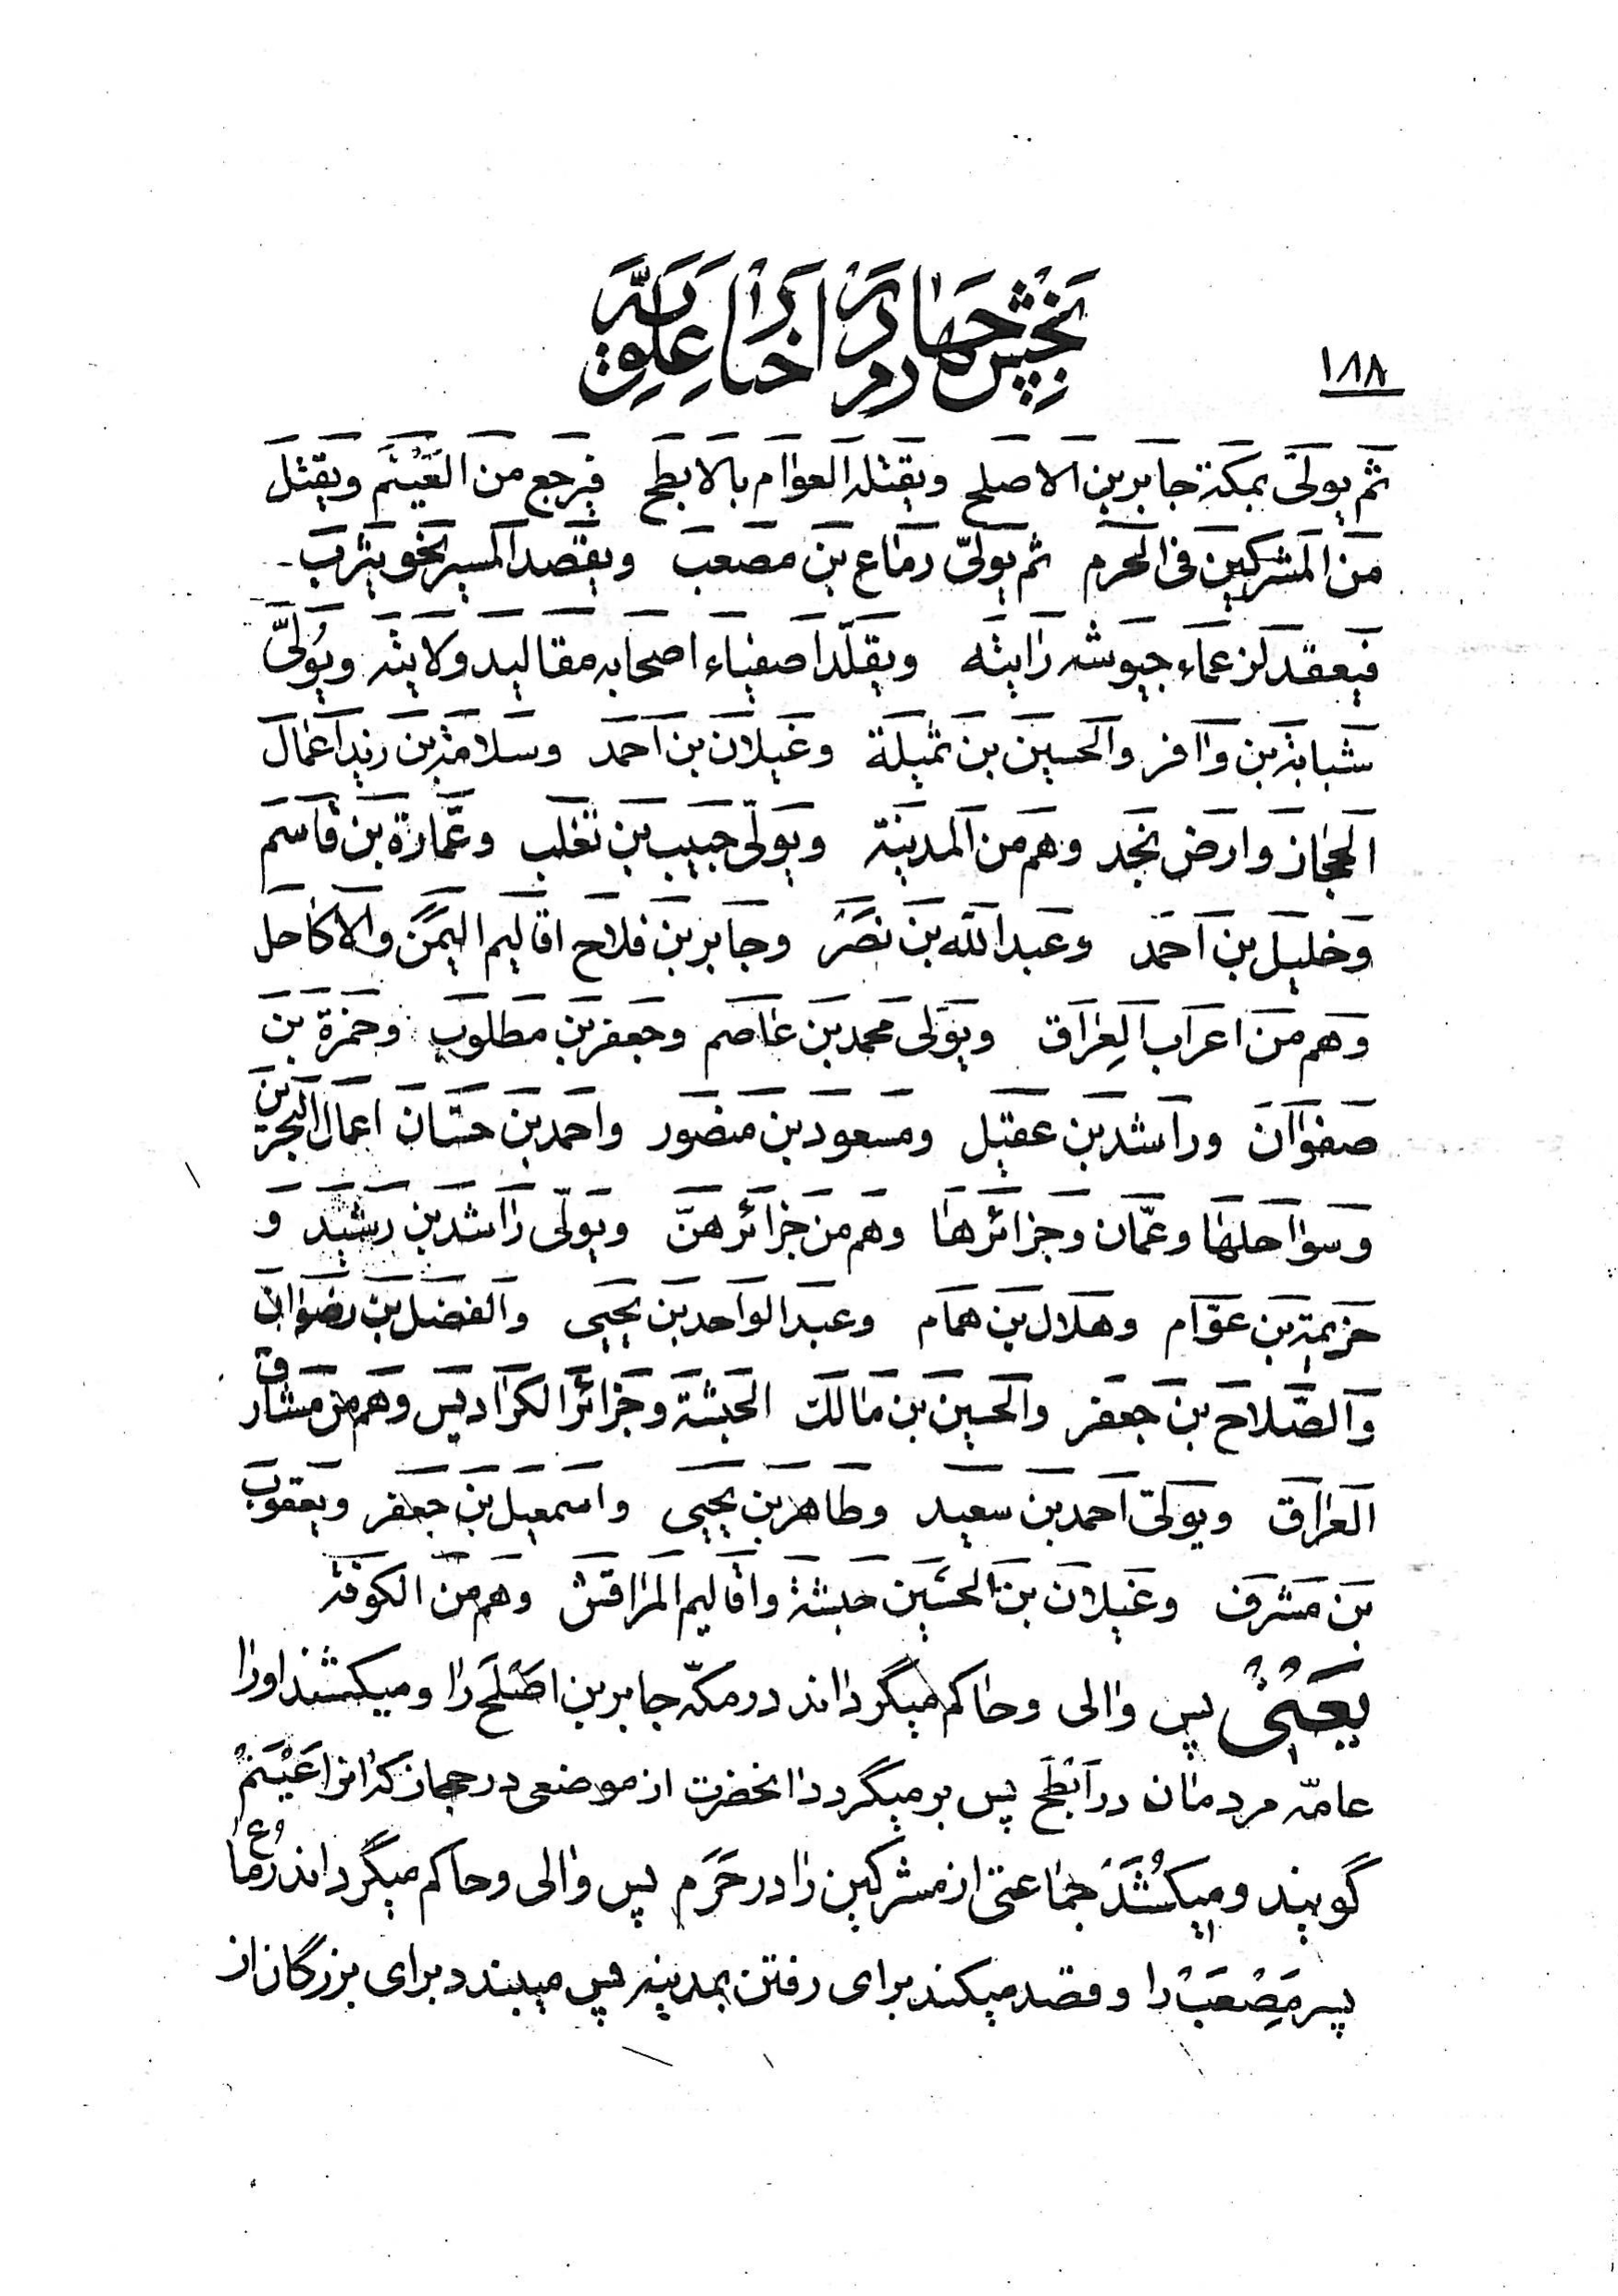 ۱۸۸
بخش چهارم در اخبار علویه
ثم یولی بمکة جابر بن الاصلح ویقتله العوام بالابطح فیرجع من العَیْثَم ویقتل
من المشرکین فی الحرم ثم یولّی رماع بن مصعب ویقصد المسیر نحو یثرب
فیعقد لزعماء جیوشه رایته ویقلّد اصفیاء اصحابه مقالید ولایته ویُولّی
شبابة بن وافر والحسین بن ثمیلة وغیلان بن احمد وسلامة بن زید اعمال
الحجاز وارض نجد وهم من المدینة ویولّی حبیب بن تغلب وعمّارة بن قاسم
وخلیل بن احمد وعبدالله بن نصر وجابر بن فلاح اقالیم الیمن والاکاحل
وهم من اعراب العِراق ویولی محمد بن عاصم وجعفر بن مطلوب وحمزة بن
صفوان وراشد بن عقیل ومسعود بن منصور واحمد بن حسّان اعمال البحرین
وسواحلها وعمّان وجزائرها وهم من جزائرهنّ ویولّی راشد بن رشید و
خزیمة بن عوّام وهلال بن همام وعبد الواحد بن یحیی والفضل بن رضوان
والصّلاح بن جعفر والحسین بن مالک الحبشة وجزائر الکرادیس وهم من مشارق
العراق ویولّی احمد بن سعید وطاهر بن یحیی واسمعیل بن جعفر ویعقوب
بن مشرف وغیلان بن الحسین حبشة واقالیم المراقش وهم من الکوفة
یعنی پس والی وحاکم میگرداند در مکّه جابر بن اصْلَح را ومیکشند اورا
عامّه مردمان در اَبْطَح پس برمیگردد انحضرت از موضعی در حجاز که انرا عَیْثَمْ
گویند ومیکُشَدَ جماعتی از مشرکین را در حَرَم پس والی وحاکم میگرداند رُماع
پسر مَصْعَبْ را وقصد میکند برای رفتن بمدینه پس میبندد برای بزرگان از